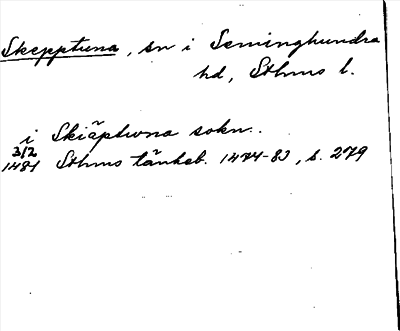 Skepptuna, sn i Seminghundra
hd, Sthms l.
i Skiäptwna sokn..
3/2
1481 Sthms tänkeb. 1474-83, s. 279